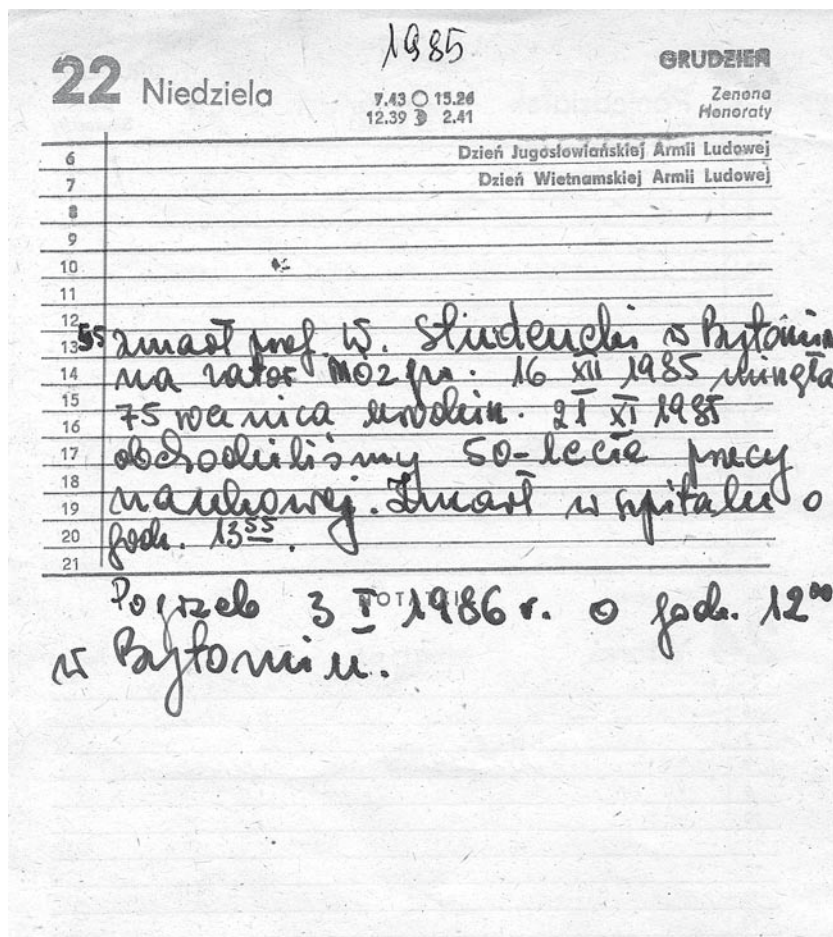 1985
22 Niedziela
GRUDZIEŃ
7.43 15.26
12.39 2.41
Zenona
Honoraty
6
Dzień Jugosłowiańskiej Armii Ludowej
7
Dzień Wietnamskiej Armii Ludowej
8
9
10
11
12
13 55 zmarł prof. W. Studencki w Bytomiu
14 na zator mózgu. 16 XII 1985 minęła
15 75 rocznica urodzin. 21 XI 1985
16
17 obchodziliśmy 50-lecie pracy
18 naukowej. Zmarł w szpitalu o
19
20 godz. 13 55.
21
Pogrzeb 3 I 1986 r. o godz. 12 00
w Bytomiu.